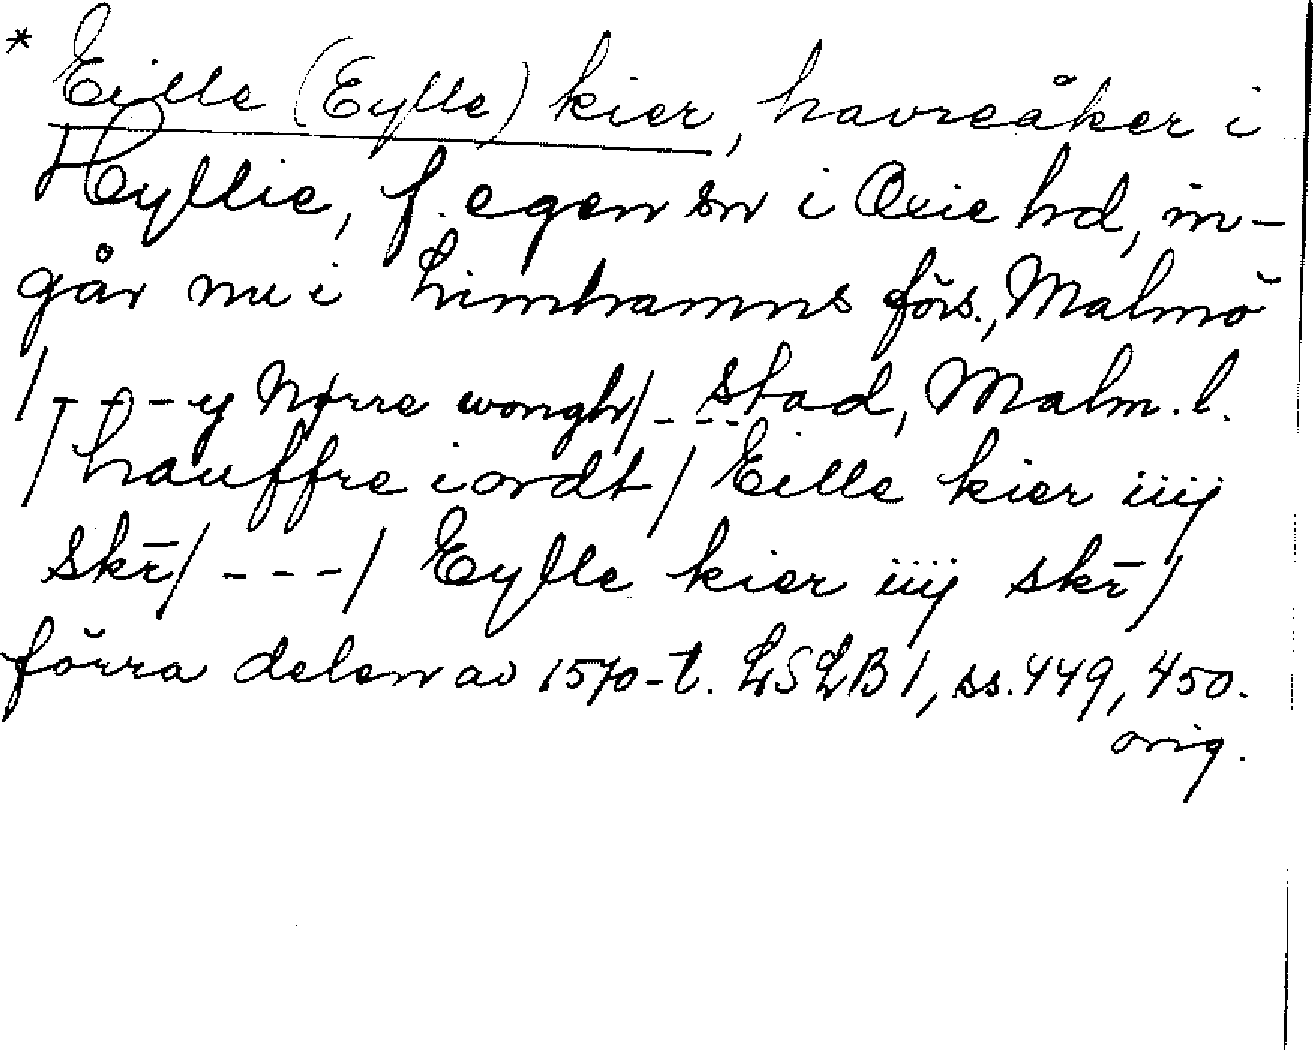 * Eille (Eylle) kier, havreåker i
Hyllie, f. egen sn i Oxie hd, in-
går nu i Limhamns förs., Malmö
/ - - - y Nørre wongh/ - - - stad, Malm. l.
/ hauffre iordt / Eille kier iiij
skr̄ / - - - / Eylle kier iiij skr̄ /
förra delen av 1570-t. LSLB 1, ss. 449, 450.
orig.